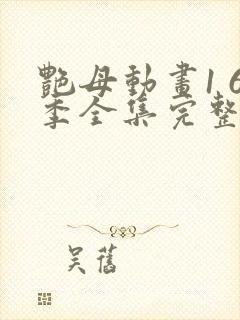 艷母動畫16
季全集完整
吴舊